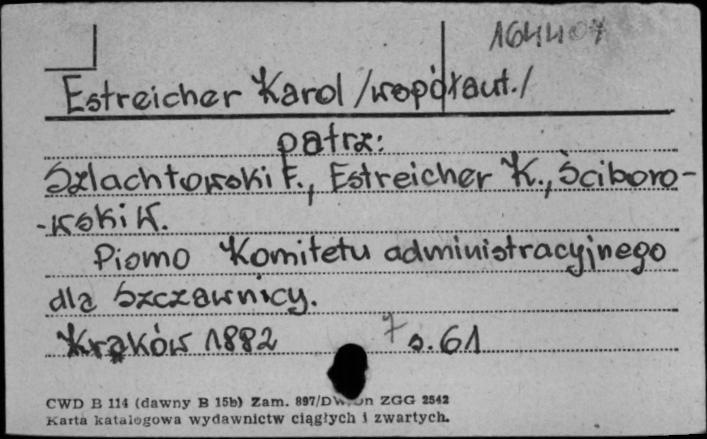 164407
Estreicher Karol /współaut./
patrz:
Szlachtowski F., Estreicher K., Ściboro-
-wski W.
Pismo Komitetu administracyjnego
dla Szczawnicy.
Kraków 1882 7 s. 61
CWD B 114 (dawny B 15b) Zam. 897/DW. ZGG 2542
Karta katalogowa wydawnictw ciągłych i zwartych.